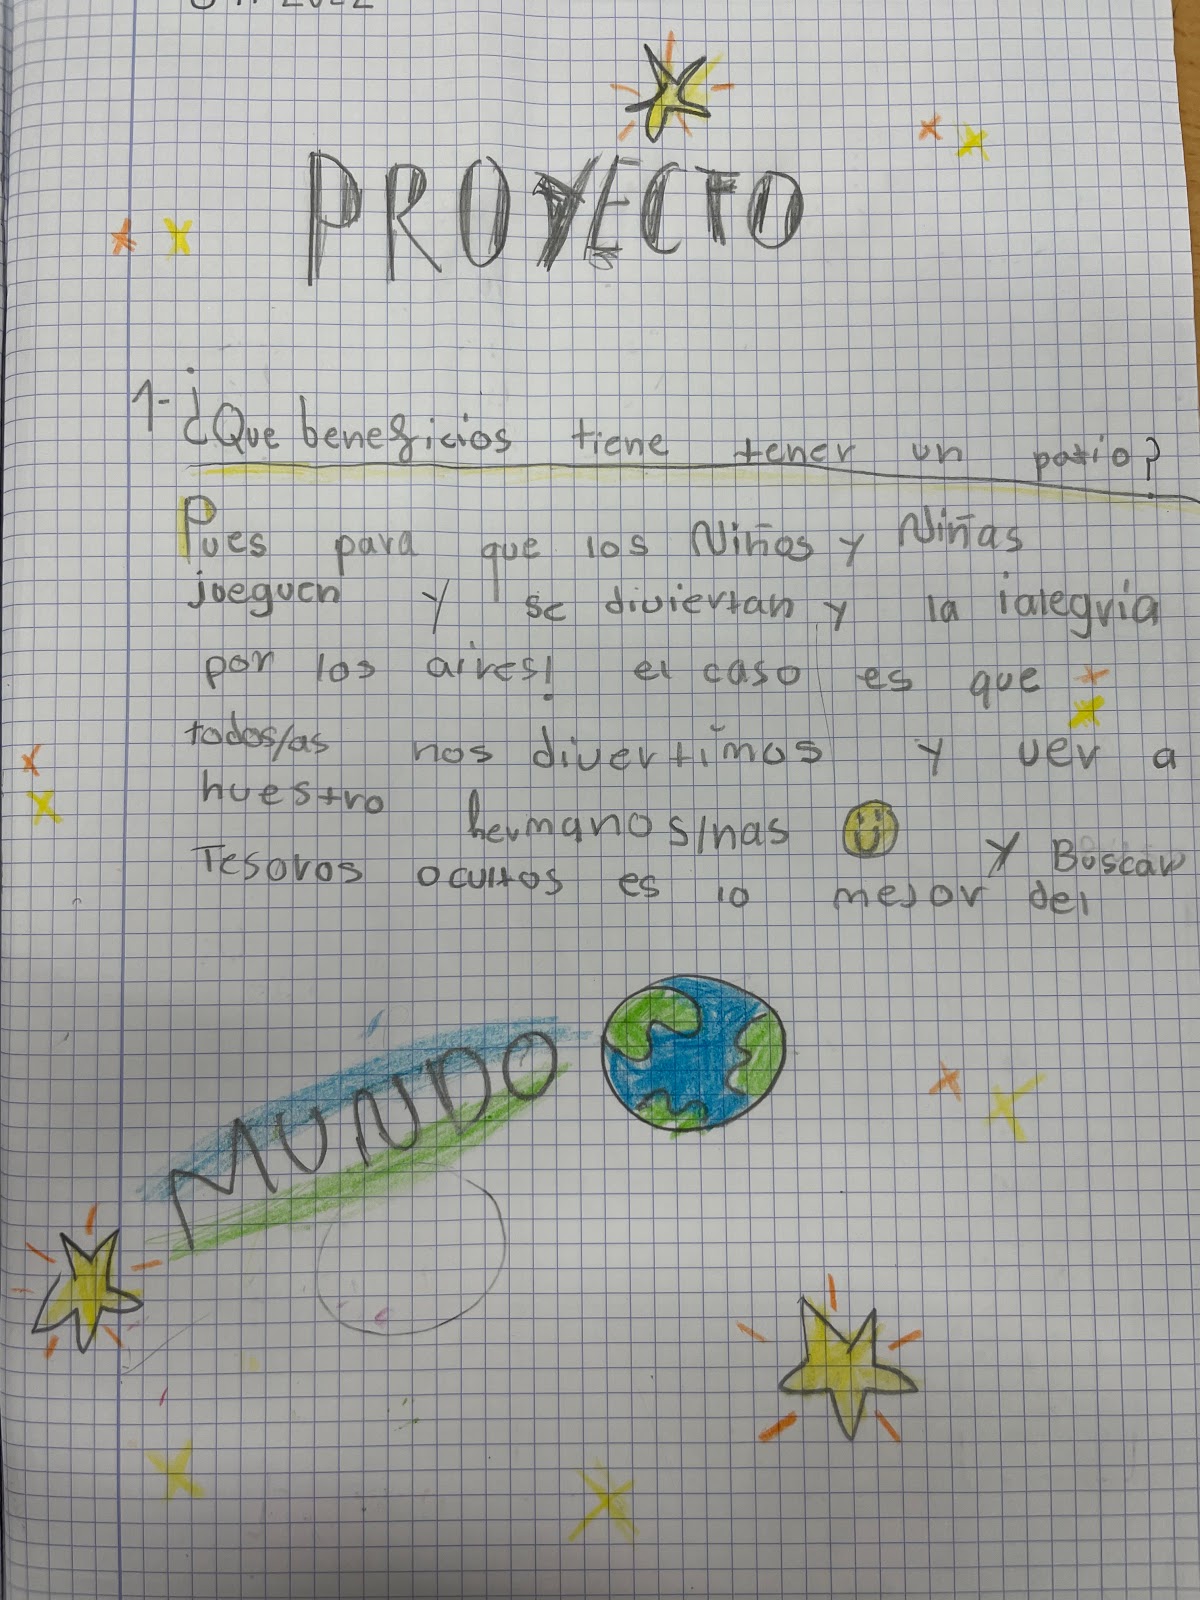 PROYECTO
1- ¿Que beneficios tiene tener un patio?
Pues para que los Niños y Niñas
jueguen y se diviertan y la ¡alegría
por los aires! el caso es que
todos/as nos divertimos y ver a
nuestro hermanos/nas y Buscar
Tesoros ocultos es lo mejor del
MUNDO